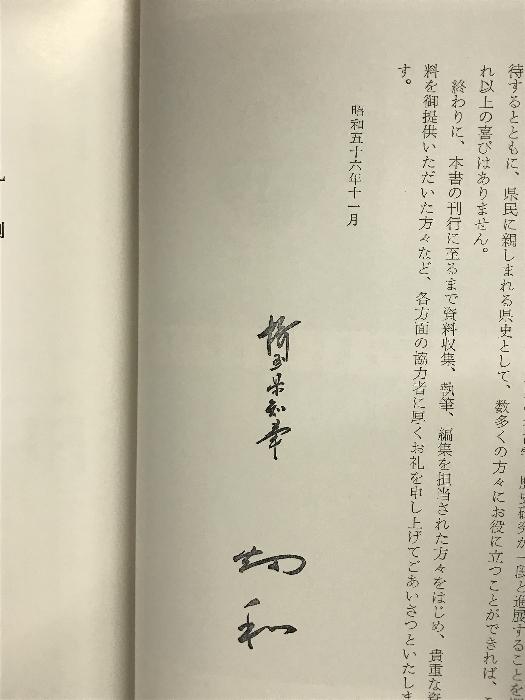 待するとともに、県民に親しまれる県史として、数多くの方々にお役に立つことができれば、こ
れ以上の喜びはありません。
終わりに、本書の刊行に至るまで資料収集、執筆、編集を担当された方々をはじめ、貴重な資
料を御提供いただいた方々など、各方面の協力者に厚くお礼を申し上げてごあいさつといたしま
す。
昭和五十六年十一月
埼玉県知事
畑和